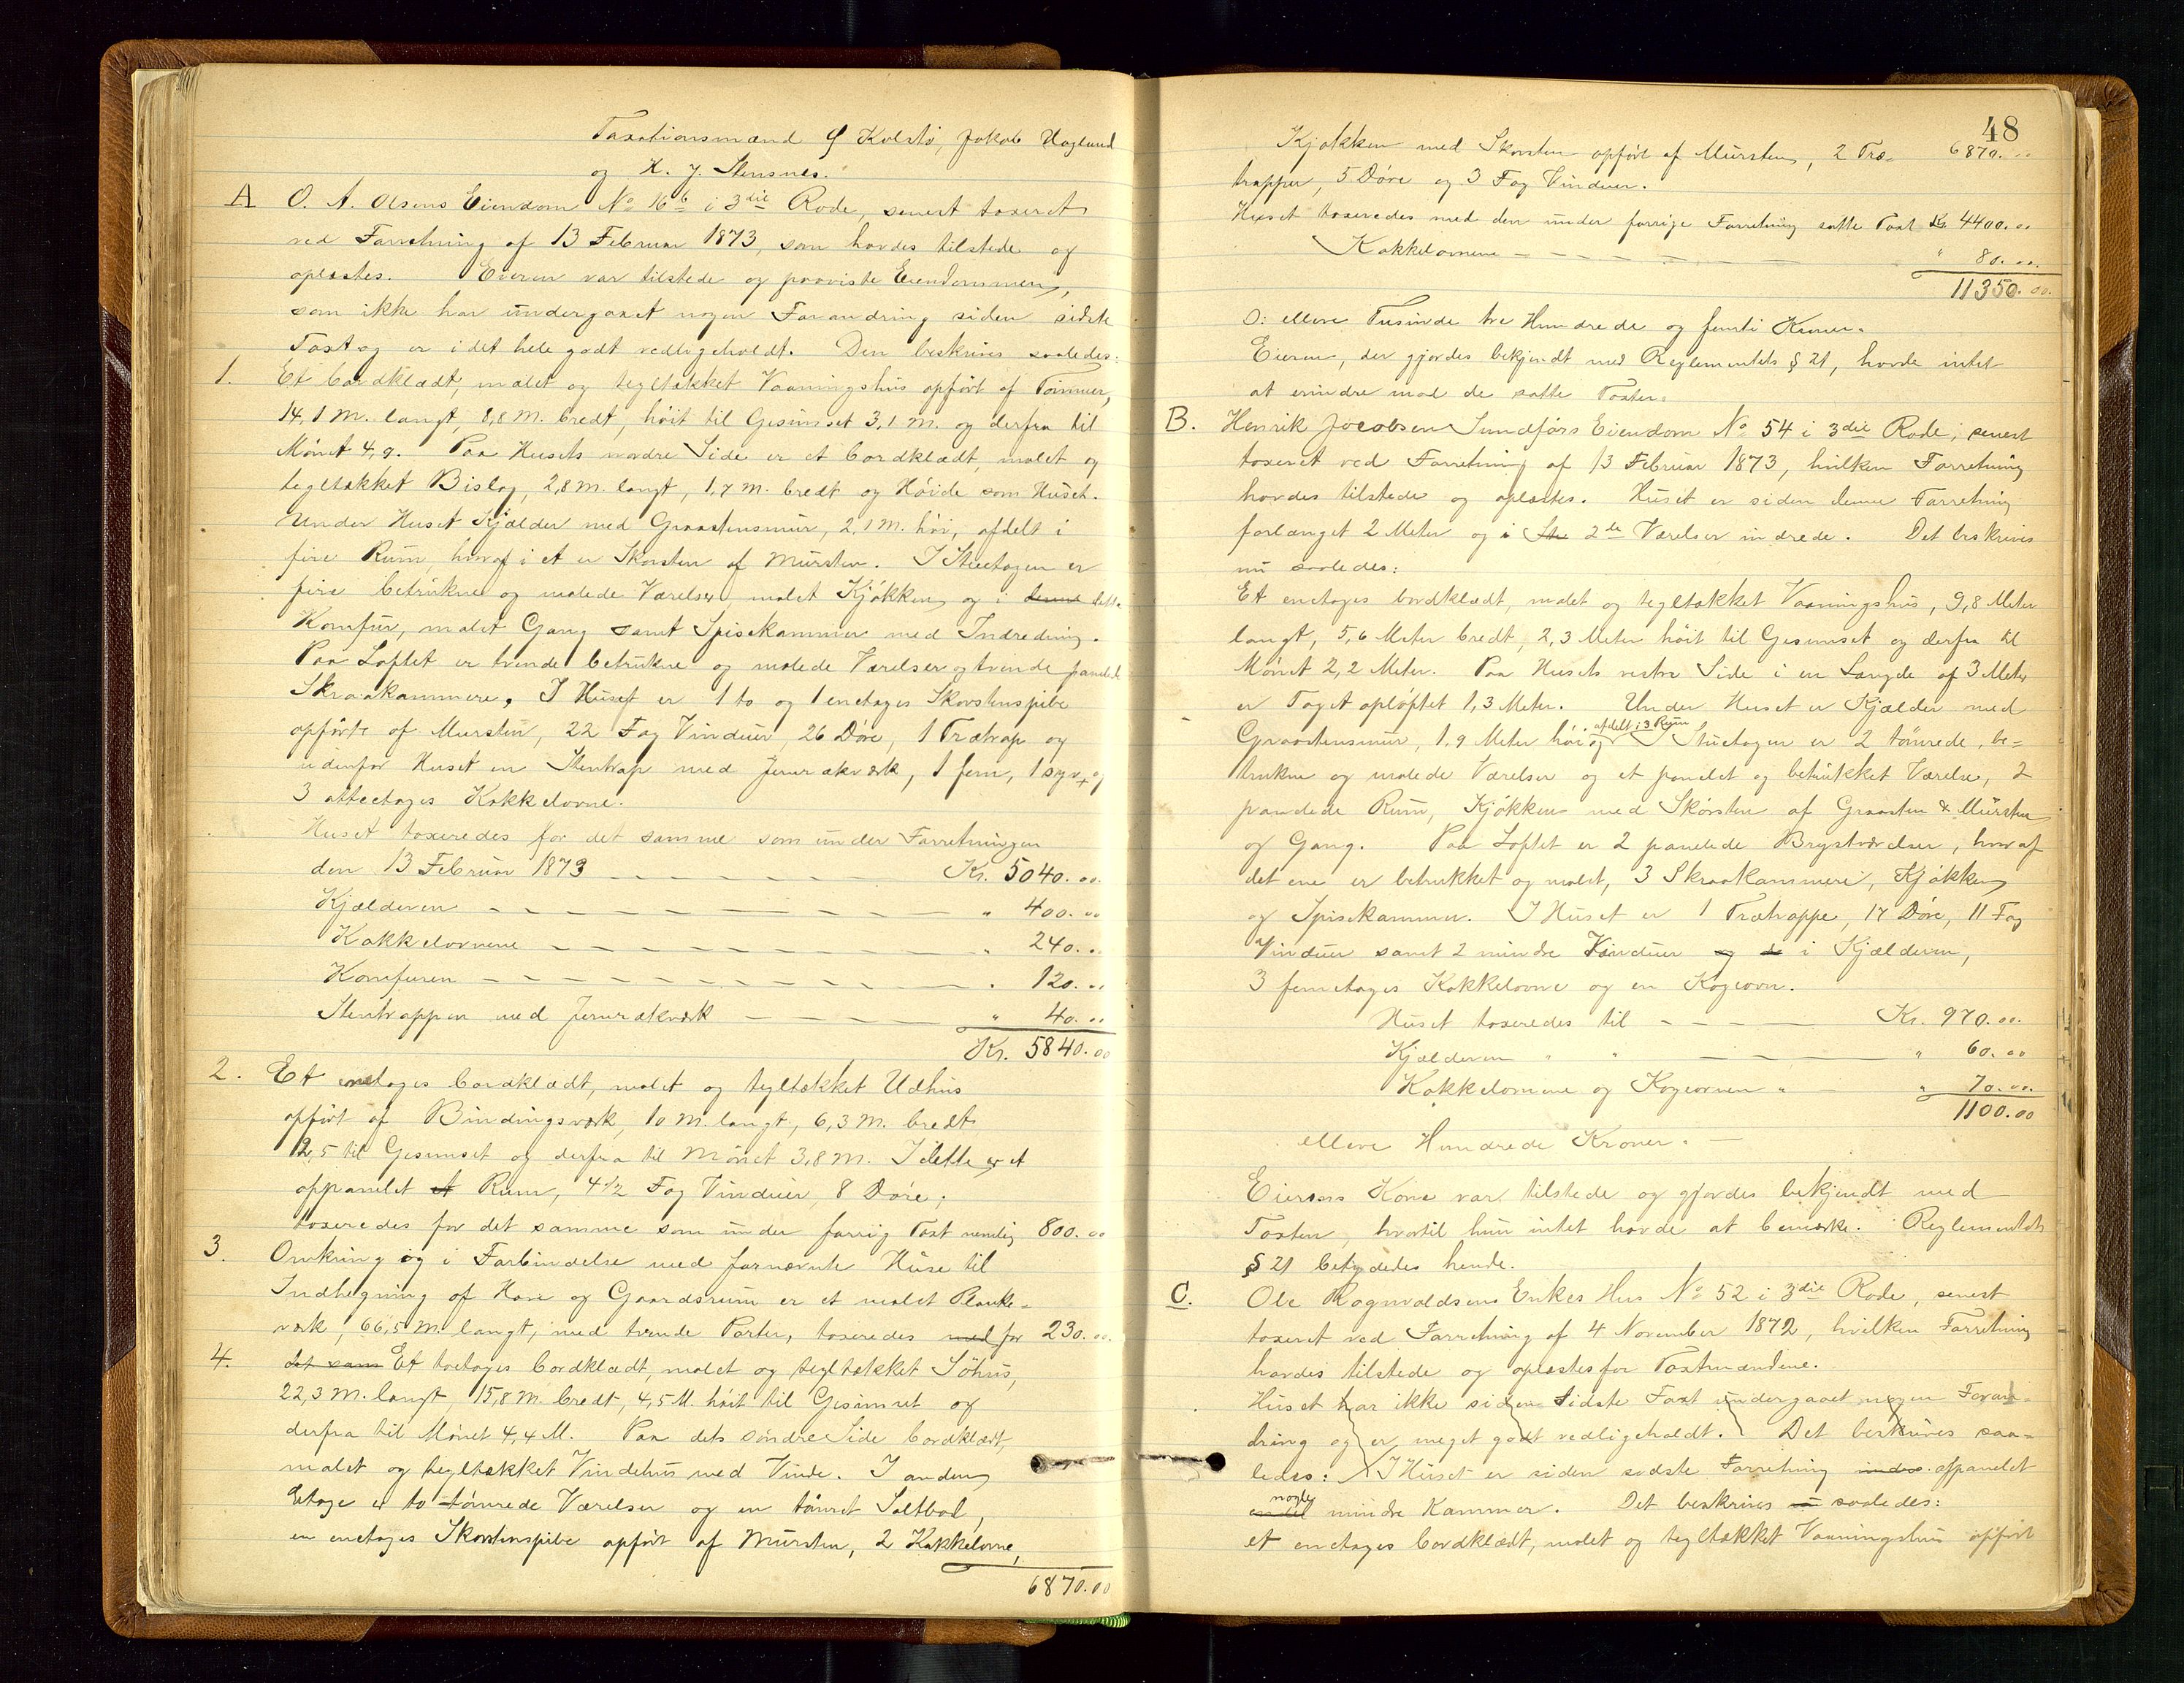 Taxationsmænd G Kolstø, Jakob Haglund
og H. J. Stensnes.
A O. A. Olsens Eiendom No 16b i 3die Rode, senest taxeret
ved Forretning af 13 Februar 1873, som havdes tilstede og
oplæstes. Eieren var tilstede og paaviste Eiendommen,
som ikke har undergaaet nogen Forandring siden sidste
Taxt og er i det hele godt vedligeholdt. Den beskrives saaledes:
1. Et bordklædt, malet og tegltækket Vaaningshus opført af Tømmer,
14,1 M. langt, 8,8 M. bredt, høit til Gesimset 3,1 M. og derfra til
Mønet 4,9. Paa Husets nordre Side er et bordklædt, malet og
tegltækket Bislag, 2,8 M. langt, 1,7 M. bredt og Høide som Huset.
Under Huset Kjælder med Graastensmur, 2,1 M. høi, afdelt i
fire Rum, hvoraf i et er Skorsten af Mursten. I Stueetagen er
fire betrukne og malede Værelser, malet Kjøkken og i denne dette
Komfur, malet Gang samt Spisekammer med Indredning.
Paa Loftet er tvende betrukne og malede Værelser og tvende panelede
Skraakammere. I Huset er 1 to og 1 enetages Skorstenspibe
opførte af Mursten, 22 Fag Vinduer, 26 Døre, 1 Trætrap og
udenfor Huset en Stentrap med Jernrækværk, 1 fem, 1 syv, og
3 otteetages Kakkelovne.
Huset taxeredes for det samme som under Forretningen
den 13 Februar 1873 Kr. 5040.00
Kjælderen " 400.00
Kakkelovnene " 240.00
Komfuren " 120.00
Stentrappen med Jernrækværk " 40.00
Kr. 5840.00
2. Et enetages bordklædt, malet og tegltækket Udhus
opført af Bindingsværk, 10 M. langt, 6,3 M. bredt
2,5 til Gesimset og derfra til Mønet 3,8 M. I dette er et
oppanelet et Rum, 4 1/2 Fag Vinduer, 8 Døre;
taxeredes for det samme som under forrig Taxt nemlig 800.00
3. Omkring og i Forbindelse med fornævnte Huse til
Indhegning af Have og Gaardsrum er et malet Planke-
værk, 66,5 M. langt, med tvende Porter, taxeredes med for 230.00
4. det sam Et toetages bordklædt, malet og tegltækket Søhus,
22,3 M. langt, 15,8 M. bredt, 4,5 M. høit til Gesimset og
derfra til Mønet 4,4 M. Paa dets søndre Side bordklædt,
malet og tegltækket Vindehus med Vinde. I anden
Etage er to tømrede Værelser og en tømret Saltbod,
en enetages Skorstenspibe opført af Mursten, 2 Kakkelovne,
6870.00
48
Kjøkken med Skorsten opført af Mursten, 2 Træ- 6870.00
trapper, 5 Døre og 3 Fag Vinduer.
Huset taxeredes med den under forrige Forretning satte Taxt Kr. 4400.00
Kakkelovnene " 80.00
11350.00
o: elleve Tusinde tre Hundrede og femti Kroner.
Eieren, der gjordes bekjendt med Reglementets § 21, havde intet
at erindre mod de satte Taxter.
B. Henrik Jacobsen Sundførs Eiendom No 54 i 3die Rode, senest
taxeret ved Forretning af 13 Februar 1873, hvilken Forretning
havdes tilstede og oplæstes. Huset er siden denne Forretning
forlænget 2 Meter og i Stu 2de Værelser indrede. Det beskrives
nu saaledes:
Et enetages bordklædt, malet og tegltækket Vaaningshus, 9,8 Meter
langt, 5,6 Meter bredt, 2,3 Meter høit til Gesimset og derfra til
Mønet 2,2 Meter. Paa Husets vestre Side i en Længde af 3 Meter
er Taget opløftet 1,3 Meter. Under Huset er Kjælder med
Graastensmur, 1,9 Meter høi og afdelt i 3 Rum I Stuetagen er 2 tømrede, be-
trukne og malede Værelser og et panelet og betrukket Værelse, 2
panelede Rum, Kjøkken med Skorsten af Graasten & Mursten
og Gang. Paa Loftet er 2 panelede Brystværelser, hvoraf
det ene er betrukket og malet, 3 Skraakammere, Kjøkken
og Spisekammer. I Huset er 1 Trætrappe, 17 Døre, 11 Fag
Vinduer samt 2 mindre Vinduer og de i Kjælderen,
3 femetages Kakkelovne og en Kogeovn.
Huset taxeredes til Kr. 970.00
Kjælderen " " " 60.00
Kakkelovnene og Kogeovnen " " 70.00
1100.00
elleve Hundrede Kroner.
Eierens Kone var tilstede og gjordes bekjendt med
Taxten, hvortil hun intet havde at bemærke. Reglementets
§ 21 betydedes hende.
C. Ole Rognvaldsens Enkes Hus No 52 i 3die Rode, senest
taxeret ved Forretning af 4 November 1872, hvilken Forretning
havdes tilstede og oplæstes for Taxtmændene.
Huset har ikke siden sidste Taxt undergaaet nogen Foran-
dring og er meget godt vedligeholdt. Det beskrives saa-
ledes: I Huset er siden sidste Forretning indre afpanelet
en del nogle mindre Kammer. Det beskrives saaledes:
et enetages bordklædt, malet og tegltækket Vaaningshus opført